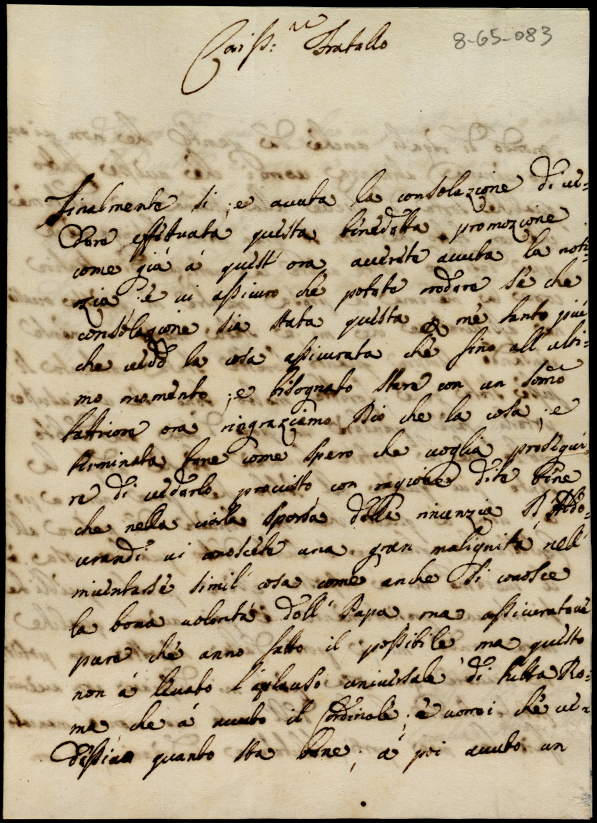 Cariss:mo Fratello
8-65-083
Finalmente si è avuta la consolazione di ve=
dere effettuata questa benedetta promozione
come già à quest' ora averete avuta la noti=
zia e vi assicuro che potete credere se che
consolazione sia stata questa p me tanto più
che vedo la cosa assicurata che fino all' ulti=
mo momento è bisognato stare con un somo
batticore ora ringraziamo Dio che la cosa è
terminata bene come spero che voglia prosequi=
re di vederlo provisto con ragione dite bene
che nella ciarla sparsa della rinunzia d' Aldo=
vrandi vi conoscete una gran malignità nell'
inventarse simil cosa come anche si conosce
la bona volontà dell' Papa ma assicuratevi
pure che anno fatto il possibile ma questo
non à levato l' aplauso universale di tutta Ro=
ma che à avuto il Cardinale, e vorrei che ve=
dessivo quanto sta bene, à poi avuto un